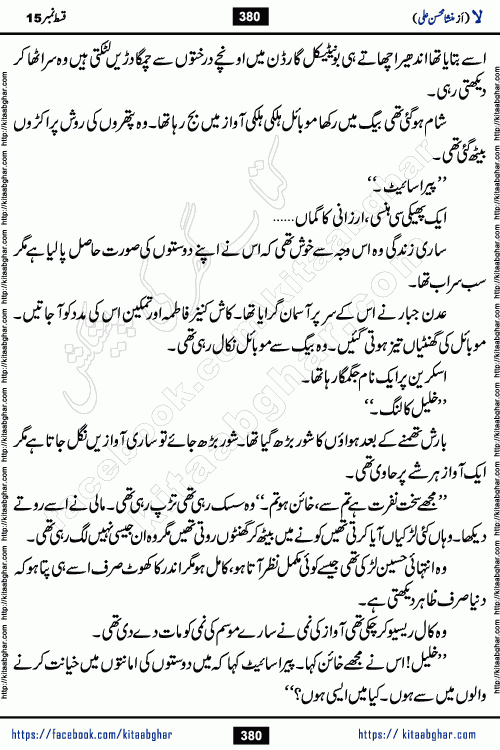 لا (از منشا محسن علی) 380 قسط نمبر 15
اسے بتایا تھا اندھیرا چھاتے ہی بوٹینیکل گارڈن میں اونچے درختوں سے چمگادڑیں لٹکتی ہیں وہ سر اٹھا کر
دیکھتی رہی۔
شام ہو گئی تھی بیگ میں رکھا موبائل ہلکی ہلکی آواز میں بج رہا تھا۔ وہ پتھروں کی روش پر اکڑوں
بیٹھ گئی تھی۔
’’پیراسائیٹ۔‘‘
ایک پھیکی سی ہنسی، ارزانی کا گماں......
ساری زندگی وہ اس وجہ سے خوش تھی کہ اس نے اپنے دوستوں کی صورت حاصل پا لیا ہے مگر
سب سراب تھا۔
عدن جبار نے اس کے سر پر آسمان گرایا تھا۔ کاش کنیز فاطمہ اور تمکین اس کی مدد کو آ جاتیں۔
موبائل کی گھنٹیاں تیز ہوتی گئیں۔ وہ بیگ سے موبائل نکال رہی تھی۔
اسکرین پر ایک نام جگمگا رہا تھا۔
’’خلیل کالنگ۔‘‘
بارش تھمنے کے بعد ہواؤں کا شور بڑھ گیا تھا۔ شور بڑھ جائے تو ساری آوازیں نگل جاتا ہے مگر
ایک آواز ہر شے پر حاوی تھی۔
’’مجھے سخت نفرت ہے تم سے، خائن ہو تم۔‘‘ وہ سسک رہی تھی تڑپ رہی تھی۔ مالی نے اسے روتے
دیکھا۔ وہاں کئی لڑکیاں آیا کرتی تھیں کونے میں بیٹھ کر گھنٹوں روتی تھیں مگر وہ ان جیسی نہیں لگ رہی تھی۔
وہ انتہائی حسین لڑکی تھی جیسے کوئی مکمل نظر آتا ہو، کامل ہو مگر اندر کا کھوٹ صرف اسے ہی پتا ہو کہ
دنیا صرف ظاہر دیکھتی ہے۔
وہ کال ریسیو کر چکی تھی آواز کی نمی نے سارے موسم کی نمی کو مات دے دی تھی۔
’’خلیل! اس نے مجھے خائن کہا۔ پیراسائیٹ کہا کہ میں دوستوں کی امانتوں میں خیانت کرنے
والوں میں سے ہوں۔ کیا میں ایسی ہوں؟‘‘
https://facebook.com/kitaabghar 380 https:// kitaabghar.com
http://kitaabghar.com http://kitaabghar.com http://kitaabghar.com http://kitaabghar.com http://kitaabghar.com
کتاب گھر کی پیشکش
kitaabghar.com
facebook.com/kitaabghar